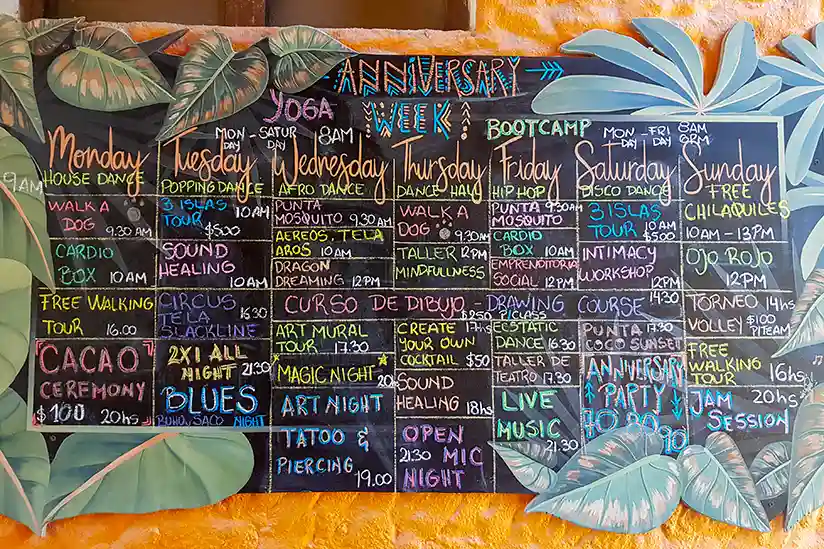 ANNIVERSARY
WEEK
YOGA
MON - SATUR 8AM
DAY DAY
BOOTCAMP
MON - FRI 8AM
DAY DAY 6PM
9AM
Monday
HOUSE DANCE
WALK A
DOG 9.30AM
CARDIO
BOX 10AM
FREE WALKING
TOUR 16.00
CACAO
CEREMONY
$100 20hs
Tuesday
POPPING DANCE
3 ISLAS 10AM
TOUR
$500
SOUND
HEALING
10AM
CIRCUS
TELA 1630
SLACKLINE
2X1 ALL
NIGHT 21:30
BLUES
BUHO, SACO NIGHT
Wednesday
AFRO DANCE
PUNTA
MOSQUITO 9.30AM
AEREOS, TELA
AROS 10AM
DRAGON
DREAMING 12PM
CURSO DE DIBUJO - DRAWING COURSE 1430
$250 P/CLASS
ART MURAL
TOUR 17.30
MAGIC NIGHT
20
ART NIGHT
TATOO &
PIERCING 19.00
Thursday
DANCE HALL
WALK A
DOG 9.30AM
TALLER 12PM
MINDFULLNESS
CREATE 17hs
YOUR OWN
COCKTAIL $50
SOUND
HEALING 18hs
OPEN
21.30 MIC
NIGHT
Friday
HIP HOP
PUNTA 9:30AM
MOSQUITO
CARDIO
BOX 10AM
EMPRENDITORIA
SOCIAL 12PM
ECSTATIC
DANCE 16.30
TALLER DE
TEATRO 17.30
LIVE
MUSIC
21.30
Saturday
DISCO DANCE
3 ISLAS
TOUR 10AM
$500
INTIMACY
WORKSHOP
12PM
PUNTA 17.30
COCO SUNSET
ANNIVERSARY
PARTY
Sunday
FREE
CHILAQUILES
10AM - 13PM
OJO ROJO
12PM
TORNEO 14hs
VOLLEY $100
P/TEAM
FREE
WALKING
TOUR 16hs
JAM 20hs
SESSION